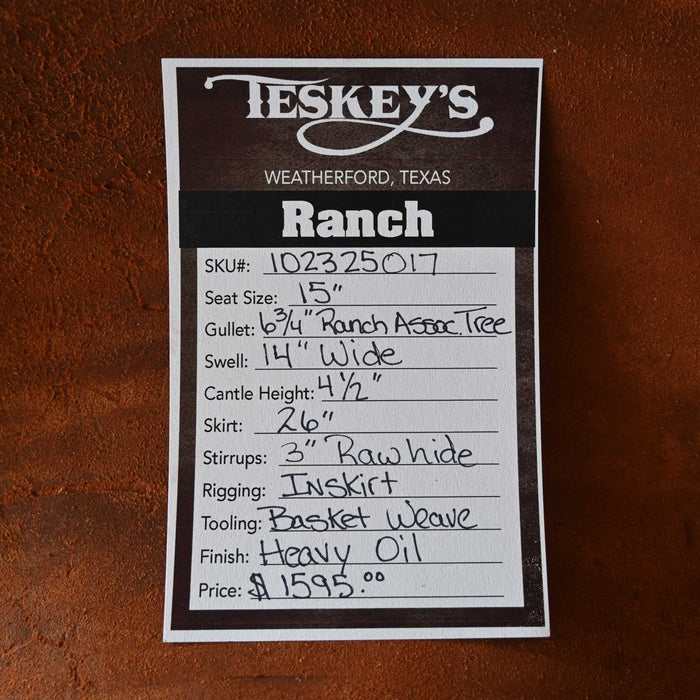 TESKEY'S
WEATHERFORD, TEXAS
Ranch
SKU#: 102325017
Seat Size: 15"
Gullet: 6 3/4" Ranch Assoc. Tree
Swell: 14" Wide
Cantle Height: 4 1/2"
Skirt: 26"
Stirrups: 3" Rawhide
Rigging: Inskirt
Tooling: Basket Weave
Finish: Heavy Oil
Price: $1595.00